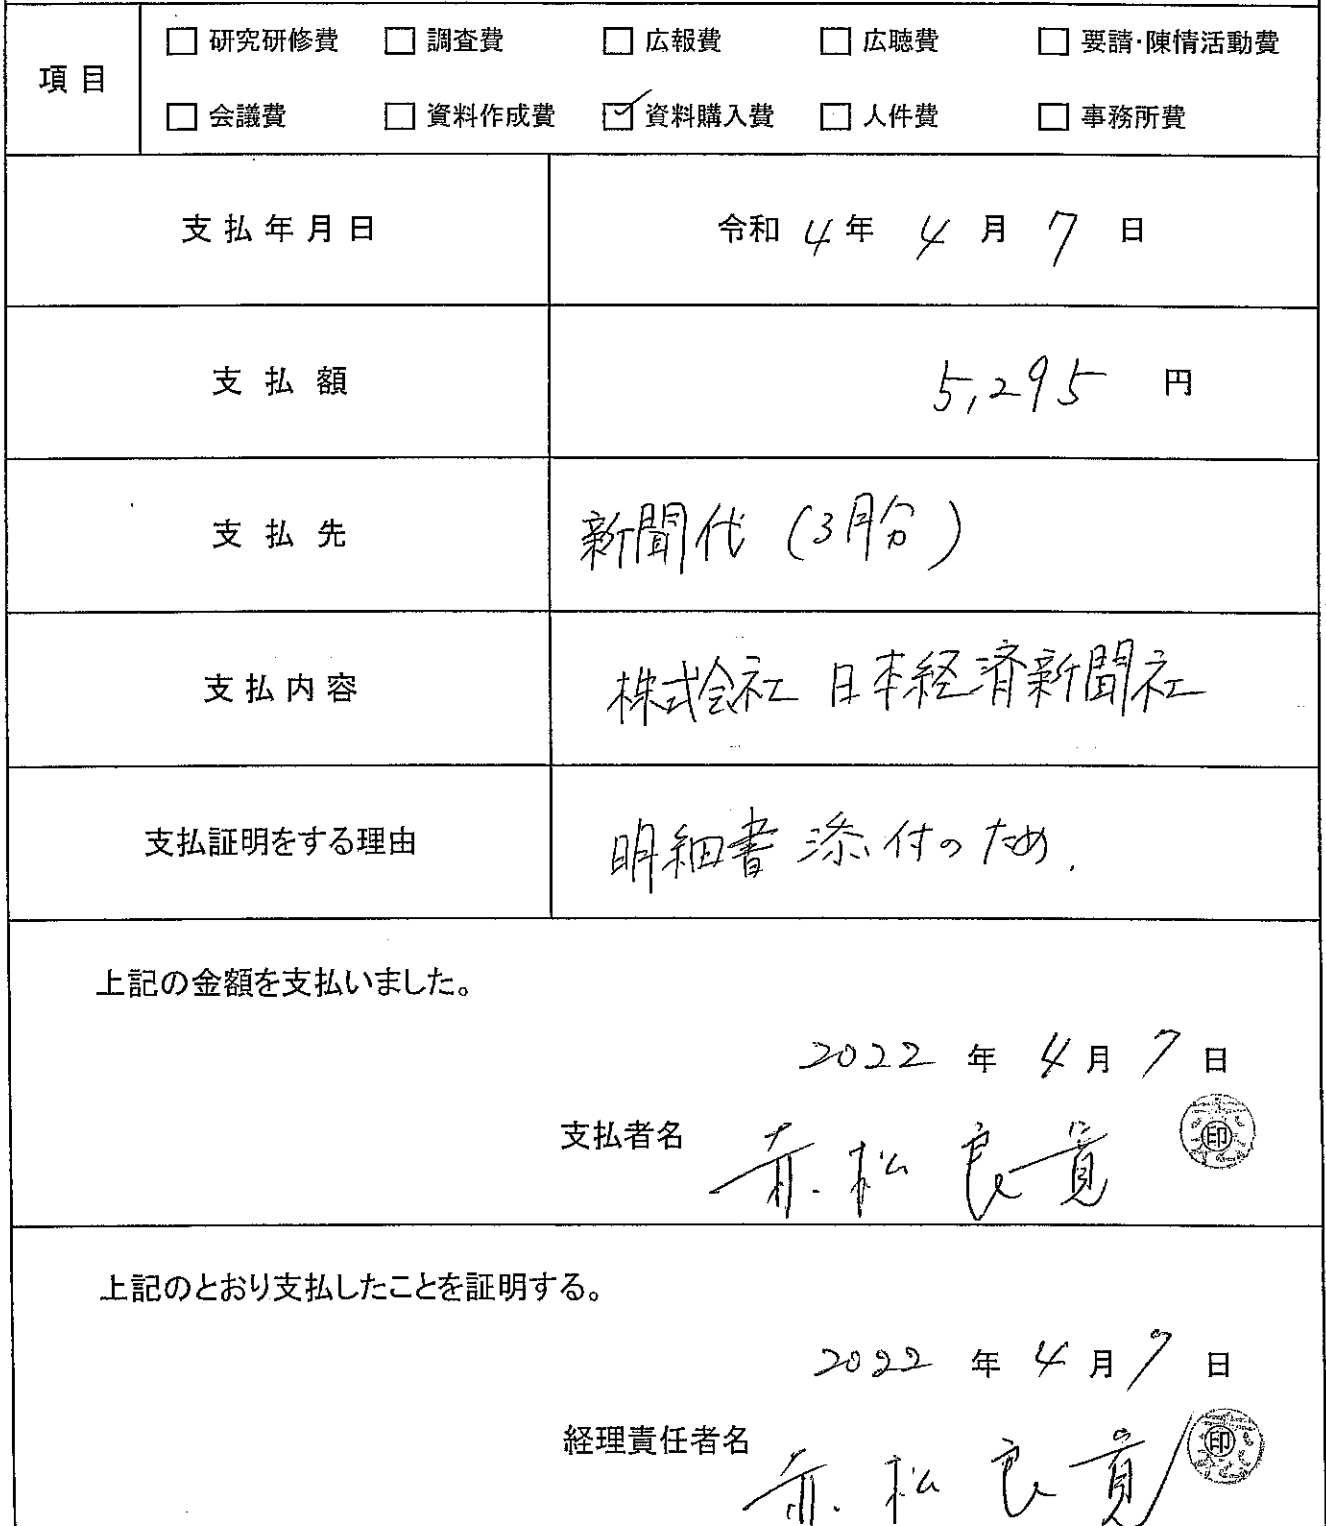 □ 研究研修費 □ 調査費 □ 広報費 □ 広聴費 □ 要請・陳情活動費
項目
□ 会議費 □ 資料作成費 ☑ 資料購入費 □ 人件費 □ 事務所費
支払年月日 令和 4 年 4 月 7 日
支払額 5,295 円
支払先 新聞代 (3月分)
支払内容 株式会社 日本経済新聞社
支払証明をする理由 明細書添付のため.
上記の金額を支払いました。
2022 年 4 月 7 日
支払者名 赤松 良寛 印
上記のとおり支払したことを証明する。
2022 年 4 月 7 日
経理責任者名 赤松 良寛 印